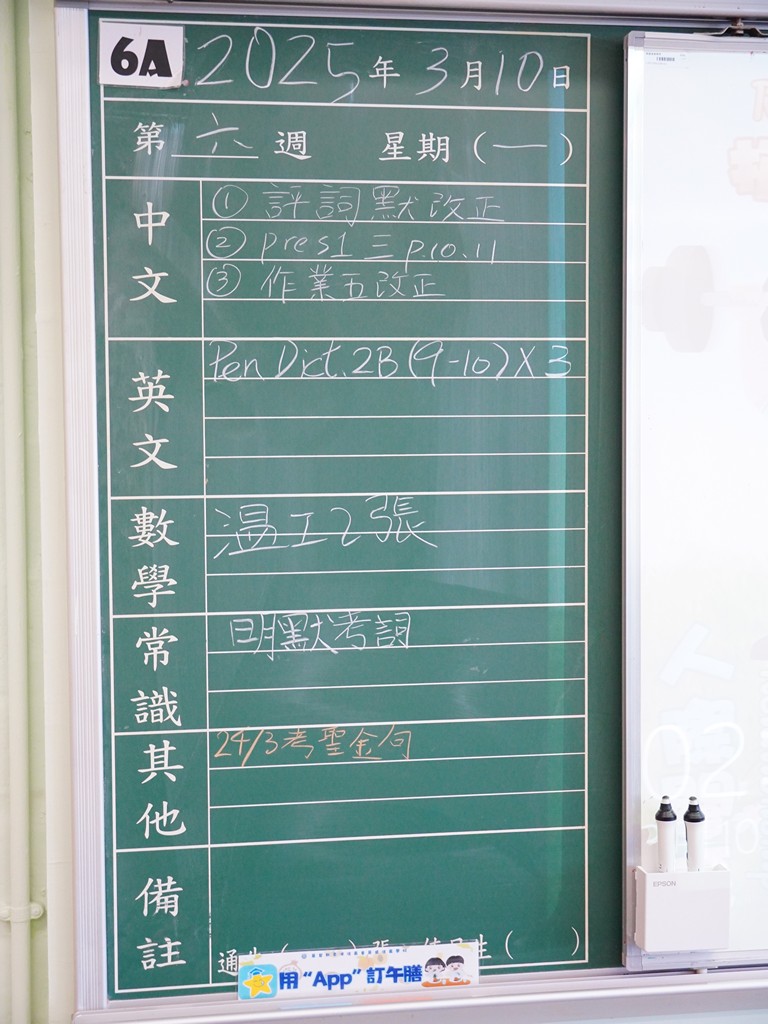 6A 2025年3月10日
第六週 星期(一)
中文
① 評詞默改正
② pres1 三 p.10.11
③ 作業五改正
英文
Pen Dict. 2B (9-10) X 3
數學
溫工2張
常識
明默考詞
其他
24/3考聖金句
備註
通 ( ) 張 值日生 ( )
用“App”訂午膳
EPSON
02